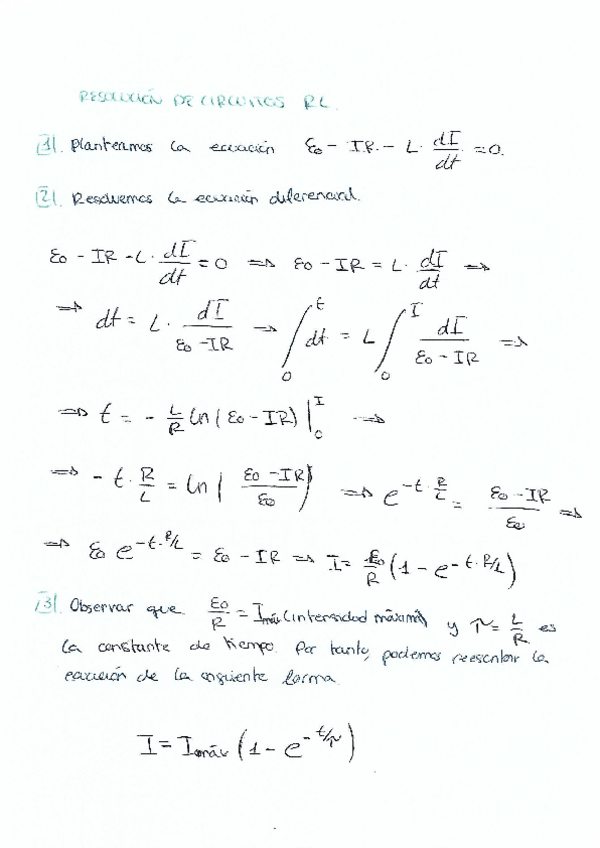 RESOLUCIÓN DE CIRCUITOS RL.
[1]. Planteamos la ecuación ε₀ - IR - L · dI/dt = 0.
[2]. Resolvemos la ecuación diferencial.
ε₀ - IR - L · dI/dt = 0 => ε₀ - IR = L · dI/dt =>
=> dt = L · dI/(ε₀ - IR) => ∫₀ᵗ dt = L ∫₀ᴵ dI/(ε₀ - IR) =>
=> t = - L/R ln(ε₀ - IR)|₀ᴵ =>
=> - t · R/L = ln((ε₀ - IR)/ε₀) => e^(-t · R/L) = (ε₀ - IR)/ε₀ =>
=> ε₀ e^(-t·R/L) = ε₀ - IR => I = ε₀/R (1 - e^(-t·R/L))
[3]. Observar que ε₀/R = Imáx (intensidad máxima) y τ = L/R es
la constante de tiempo. Por tanto, podemos reescribir la
ecuación de la siguiente forma
I = Imáx (1 - e^(-t/τ))